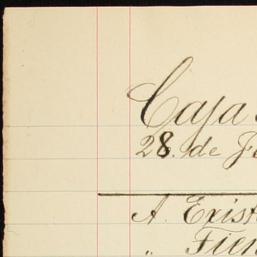 Caja
28. de
A Exist
„ Tien